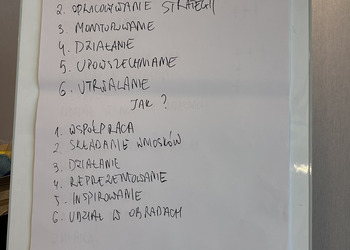 2. OPRACOWYWANIE STRATEGII
3. MONITOROWANIE
4. DZIAŁANIE
5. UPOWSZECHNIANIE
6. UTRWALANIE
JAK ?
1. WSPÓŁPRACA
2 SKŁADANIE WNIOSKÓW
3. DZIAŁANIE
4. REPREZENTOWANIE
5. INSPIROWANIE
6. UDZIAŁ W OBRADACH